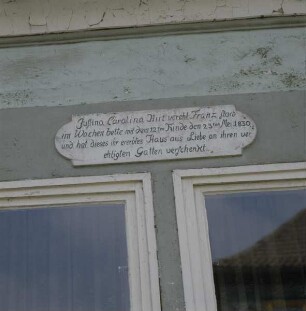 Justina Carolina Hut verehl. Franz, starb
im Wochen bette mit dem 12ten Kinde den 23ten Mai 1830
und hat dieses ihr ererbtes Haus aus Liebe an ihren ver
ehligten Gatten verschenkt.